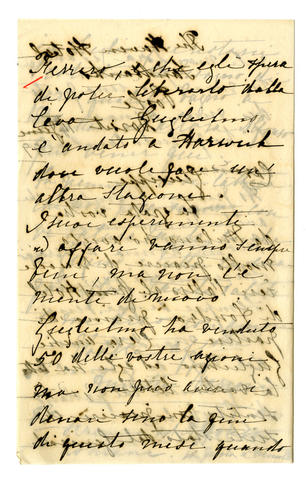 Ferrero, e che egli spera
di poter liberarlo dalla
leva. Guglielmo
è andato a Harwich
dove vuole fare un'
altra Stazione.
I suoi esperimenti
ed affari vanno sempre
bene, ma non c'è
niente di nuovo.
Guglielmo ha venduto
50 delle vostre azioni
ma non può avere i
denari sino la fine
di questo mese quando